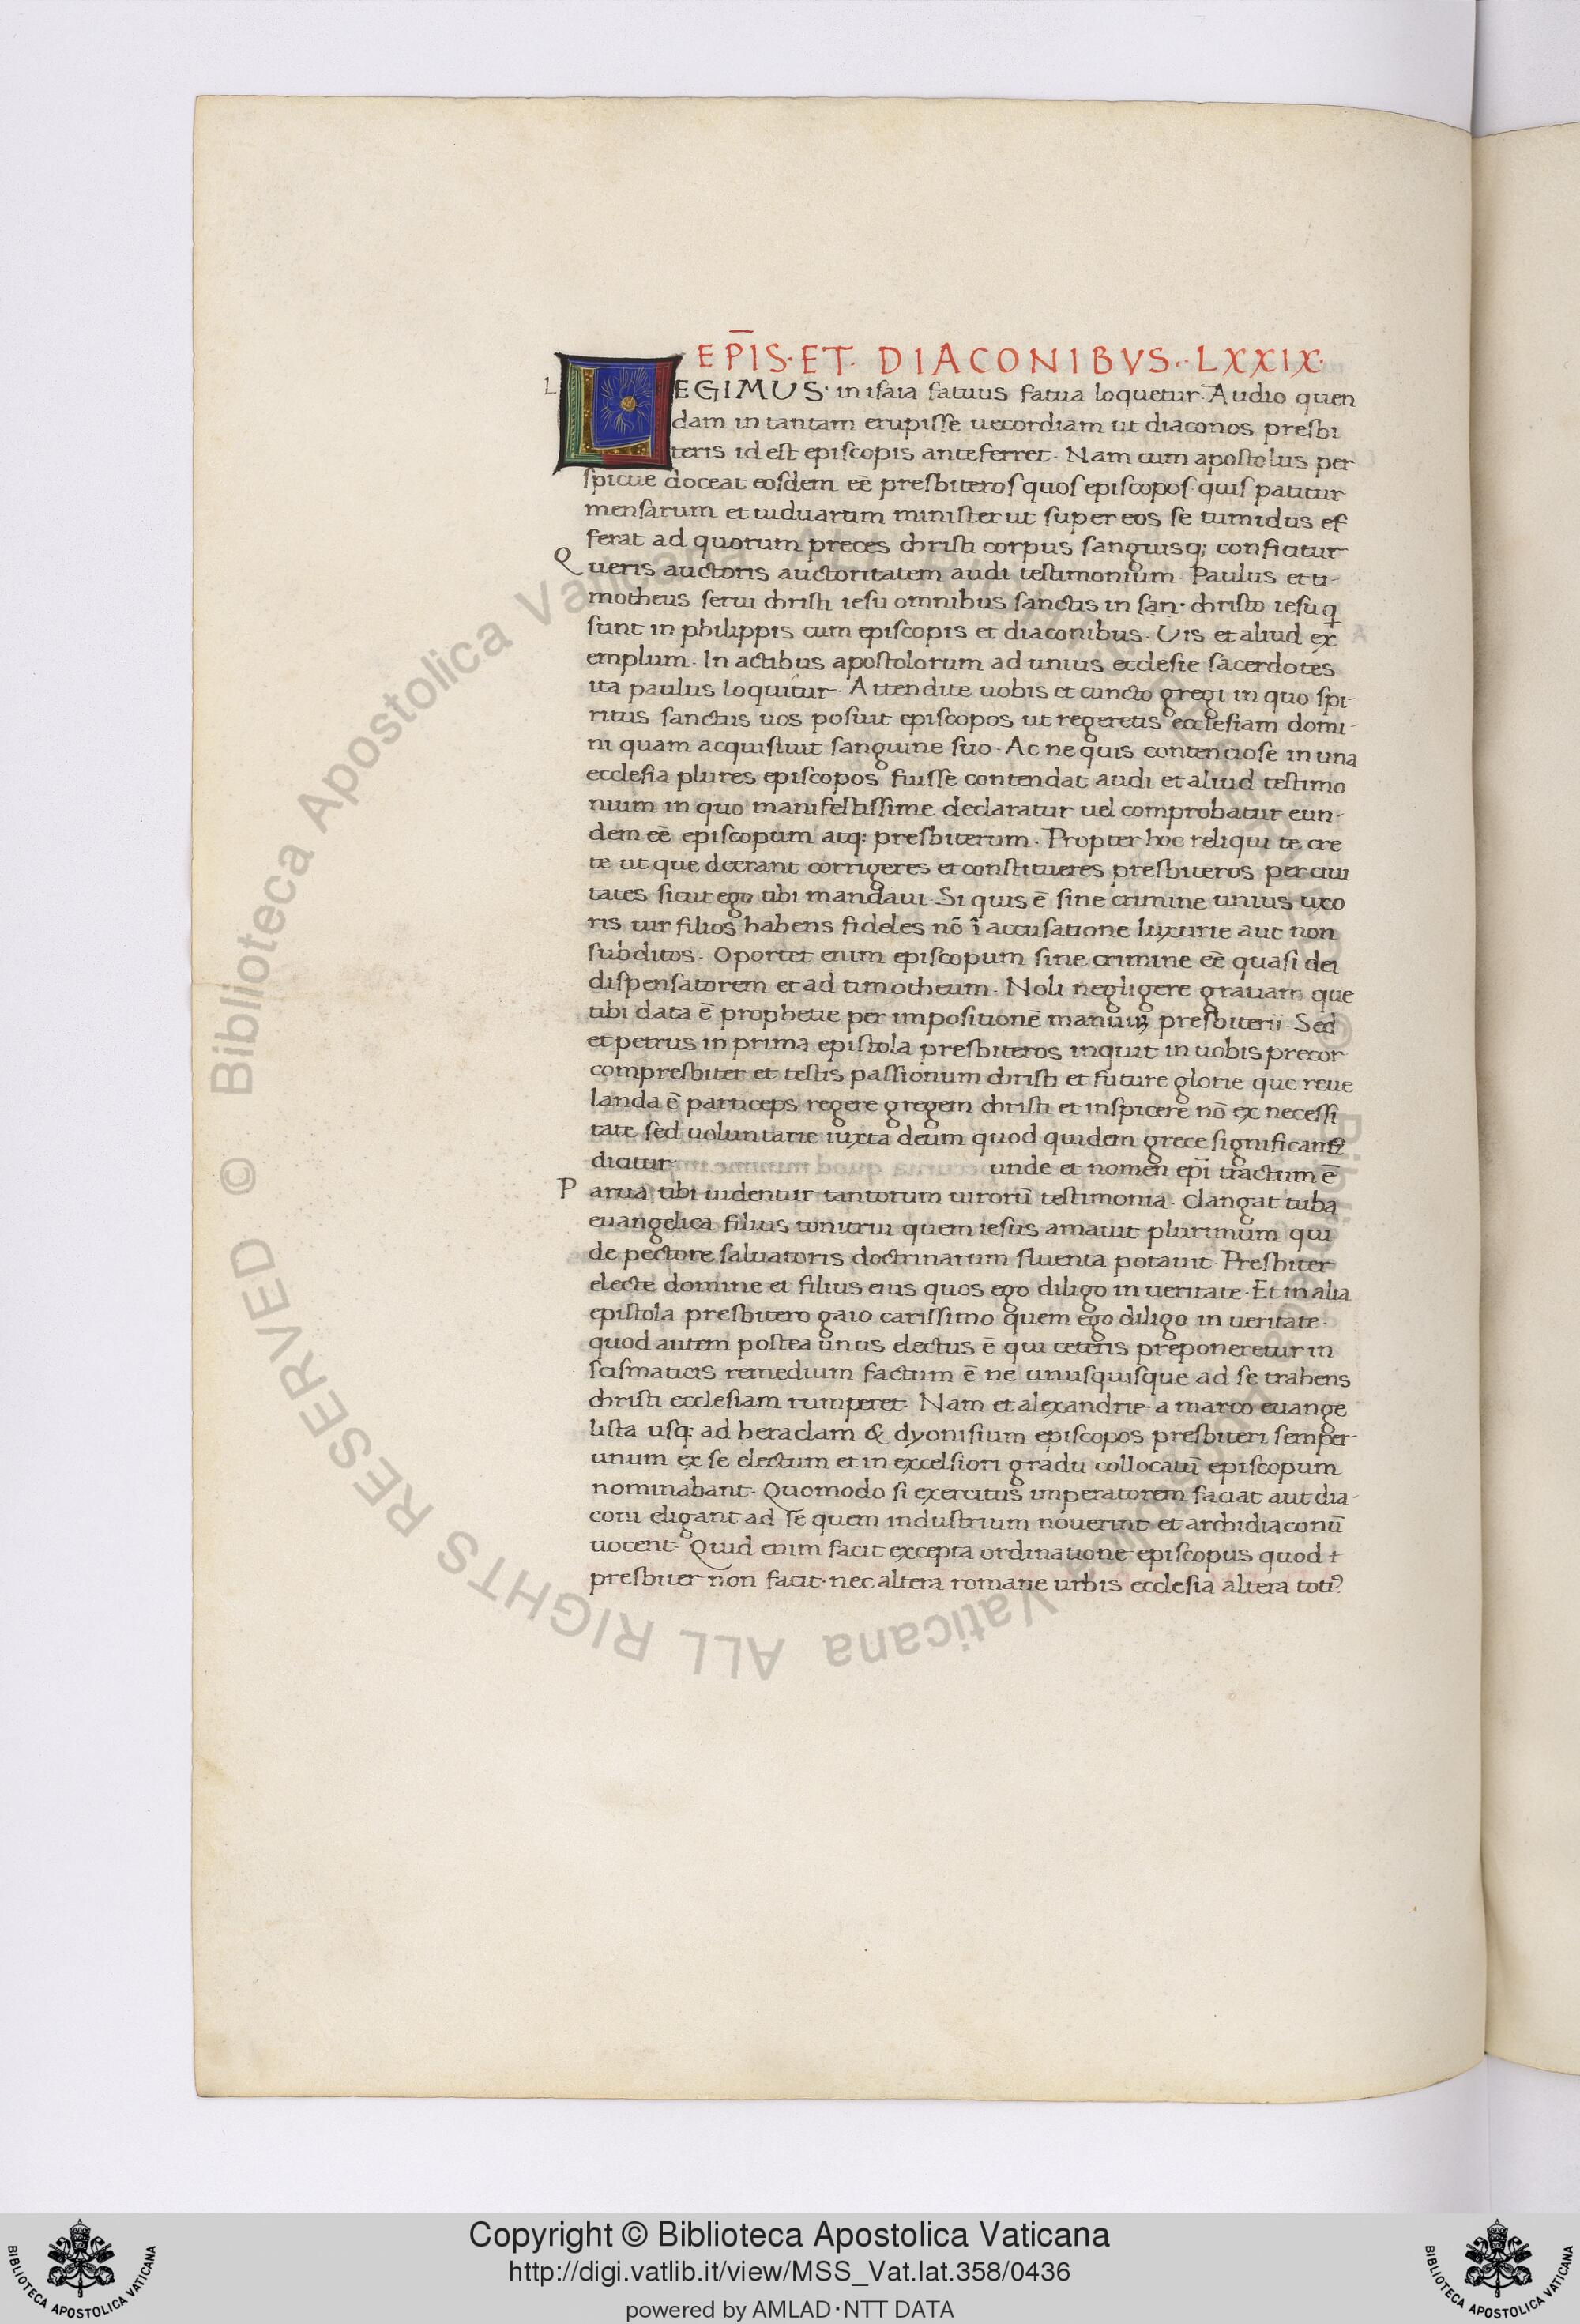 EPĪS·ET· DIACONIBVS·LXXIX·
L EGIMUS· in isaia fatuus fatua loquetur· Audio quen
dam in tantam erupisse uecordiam ut diaconos presbi
teris id est episcopis anteferret· Nam cum apostolus per
spicue doceat eosdem eē presbiteros quos episcopos quis patitur
mensarum et uiduarum minister ut super eos se tumidus ef
ferat ad quorum preces christi corpus sanguisq; conficitur
Q ueris auctoris auctoritatem audi testimonium· Paulus et ti-
motheus serui christi iesu omnibus sanctis in san· christo iesu q
sunt in philippis cum episcopis et diaconibus· Uis et aliud ex
emplum· In actibus apostolorum ad unius ecclesie sacerdotes
ita paulus loquitur· Attendite uobis et cuncto gregi in quo spi-
ritus sanctus uos posuit episcopos ut regeretis ecclesiam domi-
ni quam acquisiuit sanguine suo· Ac ne quis contenciose in una
ecclesia plures episcopos fuisse contendat audi et aliud testimo
nium in quo manifestissime declaratur uel comprobatur eun-
dem eē episcopum atq: presbiterum· Propter hoc reliqui te cre
te ut que deerant corrigeres et constitueres presbiteros per ciui
tates sicut ego tibi mandaui· Si quis ē sine crimine unius uxo
ris uir filios habens fideles nō ī accusatione luxurie aut non
subditos· Oportet enim episcopum sine crimine eē quasi dei
dispensatorem et ad timotheum· Noli negligere gratiam que
tibi data ē prophetie per impositionē manuuꝫ presbiterii· Sed
et petrus in prima epistola presbiteros inquit in uobis precor
compresbiter et testis passionum christi et future glorie que reue
landa ē particeps regere gregem christi et inspicere nō ex necessi
tate sed uoluntarie iuxta deum quod quidem grece significant
dicitur unde et nomen epī tractum ē
P arua tibi uidentur tantorum uirorū testimonia· Clangat tuba
euangelica filius tonitrui quem iesus amauit plurimum qui
de pectore saluatoris doctrinarum fluenta potauit· Presbiter
electe domine et filius eius quos ego diligo in ueritate· Et in alia
epistola presbitero gaio carissimo quem ego diligo in ueritate·
quod autem postea unus electus ē qui ceteris preponeretur in
scismaticis remedium factum ē ne unusquisque ad se trahens
christi ecclesiam rumperet· Nam et alexandrie a marco euange
lista usq: ad heraclam & dyonisium episcopos presbiteri semper
unum ex se electum et in excelsiori gradu collocatū episcopum
nominabant· Quomodo si exercitus imperatorem faciat aut dia-
coni eligant ad se quem industrium nouerint et archidiaconū
uocent· Quid enim facit excepta ordinatione episcopus quod +
presbiter non facit· nec altera romane urbis ecclesia altera totiꝰ
© Biblioteca Apostolica Vaticana ALL RIGHTS RESERVED
Copyright © Biblioteca Apostolica Vaticana
http://digi.vatlib.it/view/MSS_Vat.lat.358/0436
powered by AMLAD·NTT DATA
BIBLIOTECA APOSTOLICA VATICANA
BIBLIOTECA APOSTOLICA VATICANA